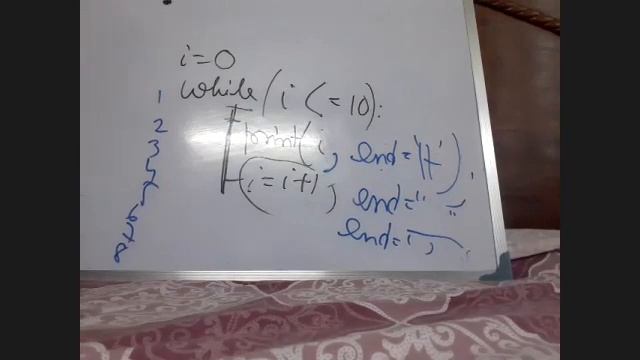 i=0
while (i <= 10):
print(i, end='\t')
i=i+1, end=" "
end=',
1
2
3